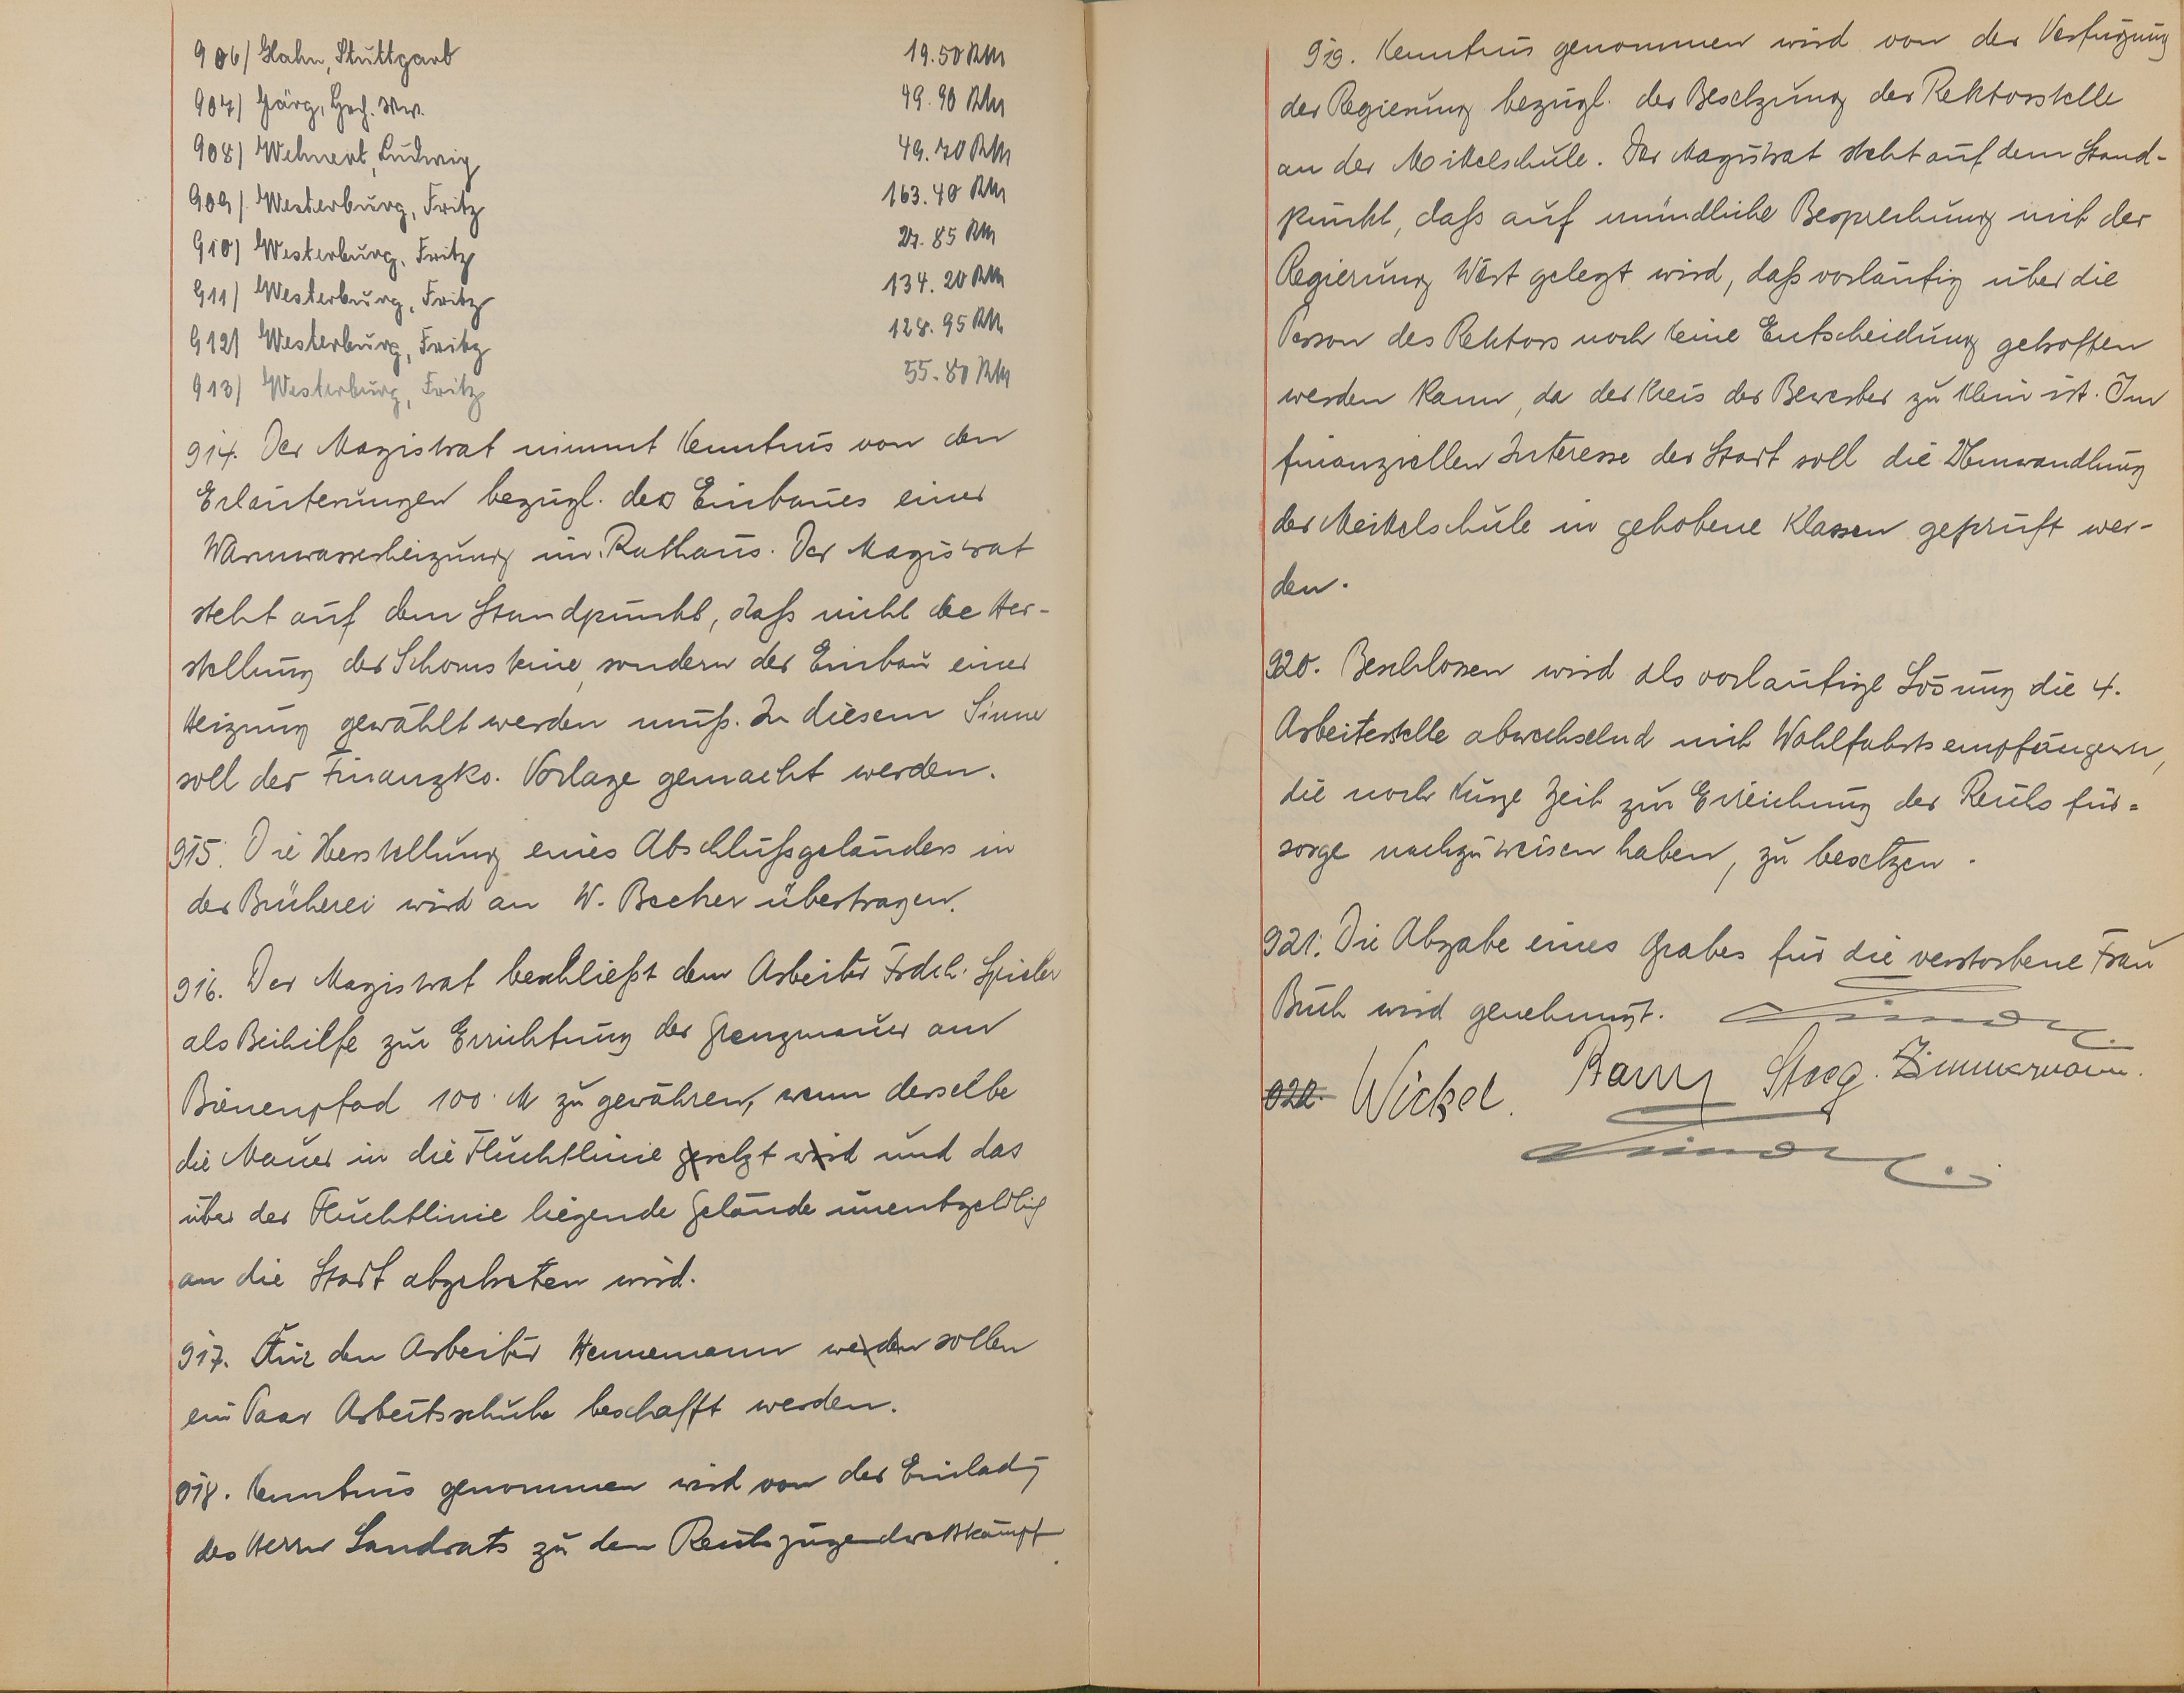 906) Hahn, Stuttgart 19.50 RM
907) Görg, Hch. Ww. 49.90 RM
908) Wehnert, Ludwig 49.70 RM
909) Westerburg, Fritz 163.40 RM
910) Westerburg, Fritz 27.85 RM
911) Westerburg, Fritz 134.20 RM
912) Westerburg, Fritz 128.95 RM
913) Westerburg, Fritz 55.80 RM
914. Der Magistrat nimmt Kenntnis von den
Erläuterungen bezügl. des Einbaues einer
Warmwasserheizung im Rathaus. Der Magistrat
steht auf dem Standpunkt, daß nicht die Her-
stellung der Schornsteine, sondern der Einbau einer
Heizung gewählt werden muß. In diesem Sinne
soll der Finanzko. Vorlage gemacht werden.
915. Die Herstellung eines Abschlußgeländers in
der Bücherei wird an W. Becker übertragen.
916. Der Magistrat beschließt dem Arbeiter Frdch. Spieler
als Beihilfe zur Errichtung der Grenzmauer am
Bienenpfad 100 M zu gewähren, wenn derselbe
die Mauer in die Fluchtlinie gesetzt wird und das
über der Fluchtlinie liegende Gelände unentgeldlich
an die Stadt abgetreten wird.
917. Für den Arbeiter Hennemann werden sollen
ein Paar Arbeitsschuhe beschafft werden.
918. Kenntnis genommen wird von der Einladg
des Herrn Landrats zu dem Reichsjugendwettkampf.
919. Kenntnis genommen wird von der Verfügung
der Regierung bezügl. der Besetzung der Rektorstelle
an der Mittelschule. Der Magistrat steht auf dem Stand-
punkt, daß auf mündliche Besprechung mit der
Regierung Wert gelegt wird, daß vorläufig über die
Person des Rektors noch keine Entscheidung getroffen
werden kann, da der Kreis der Bewerber zu klein ist. Im
finanziellen Interesse der Stadt soll die Umwandlung
der Mittelschule in gehobene Klassen geprüft wer-
den.
920. Beschlossen wird als vorläufige Lösung die 4.
Arbeiterstelle abwechselnd mit Wohlfahrtsempfängern,
die noch kurze Zeit zur Erreichung der Reichsfür=
sorge nachzuweisen haben, zu besetzen.
921. Die Abgabe eines Grabes für die verstorbene Frau
Buch wird genehmigt.
922. Wickel. Zimmermann.